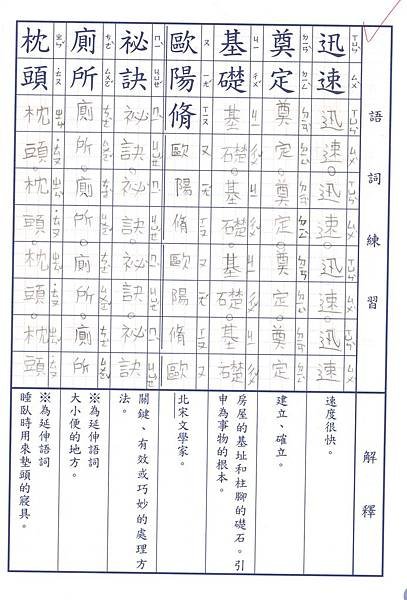 語詞練習
解釋
迅速
迅速。迅速。迅速。迅速
速度很快。
奠定
奠定。奠定。奠定。奠定
建立、確立。
基礎
基礎。基礎。基礎。基礎
房屋的基址和柱腳的礎石。引
申為事物的根本。
歐陽脩
歐陽脩歐陽脩歐
北宋文學家。
祕訣
祕訣。祕訣。祕訣。祕訣
關鍵、有效或巧妙的處理方
法。
廁所
廁所。廁所。廁所。廁所
※為延伸語詞
大小便的地方。
枕頭
枕頭。枕頭。枕頭。枕頭
※為延伸語詞
睡臥時用來墊頭的寢具。